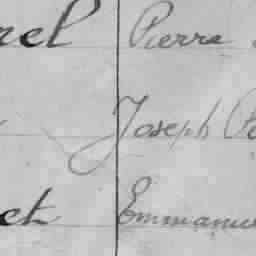 rel Pierre
Joseph
et Emmanu